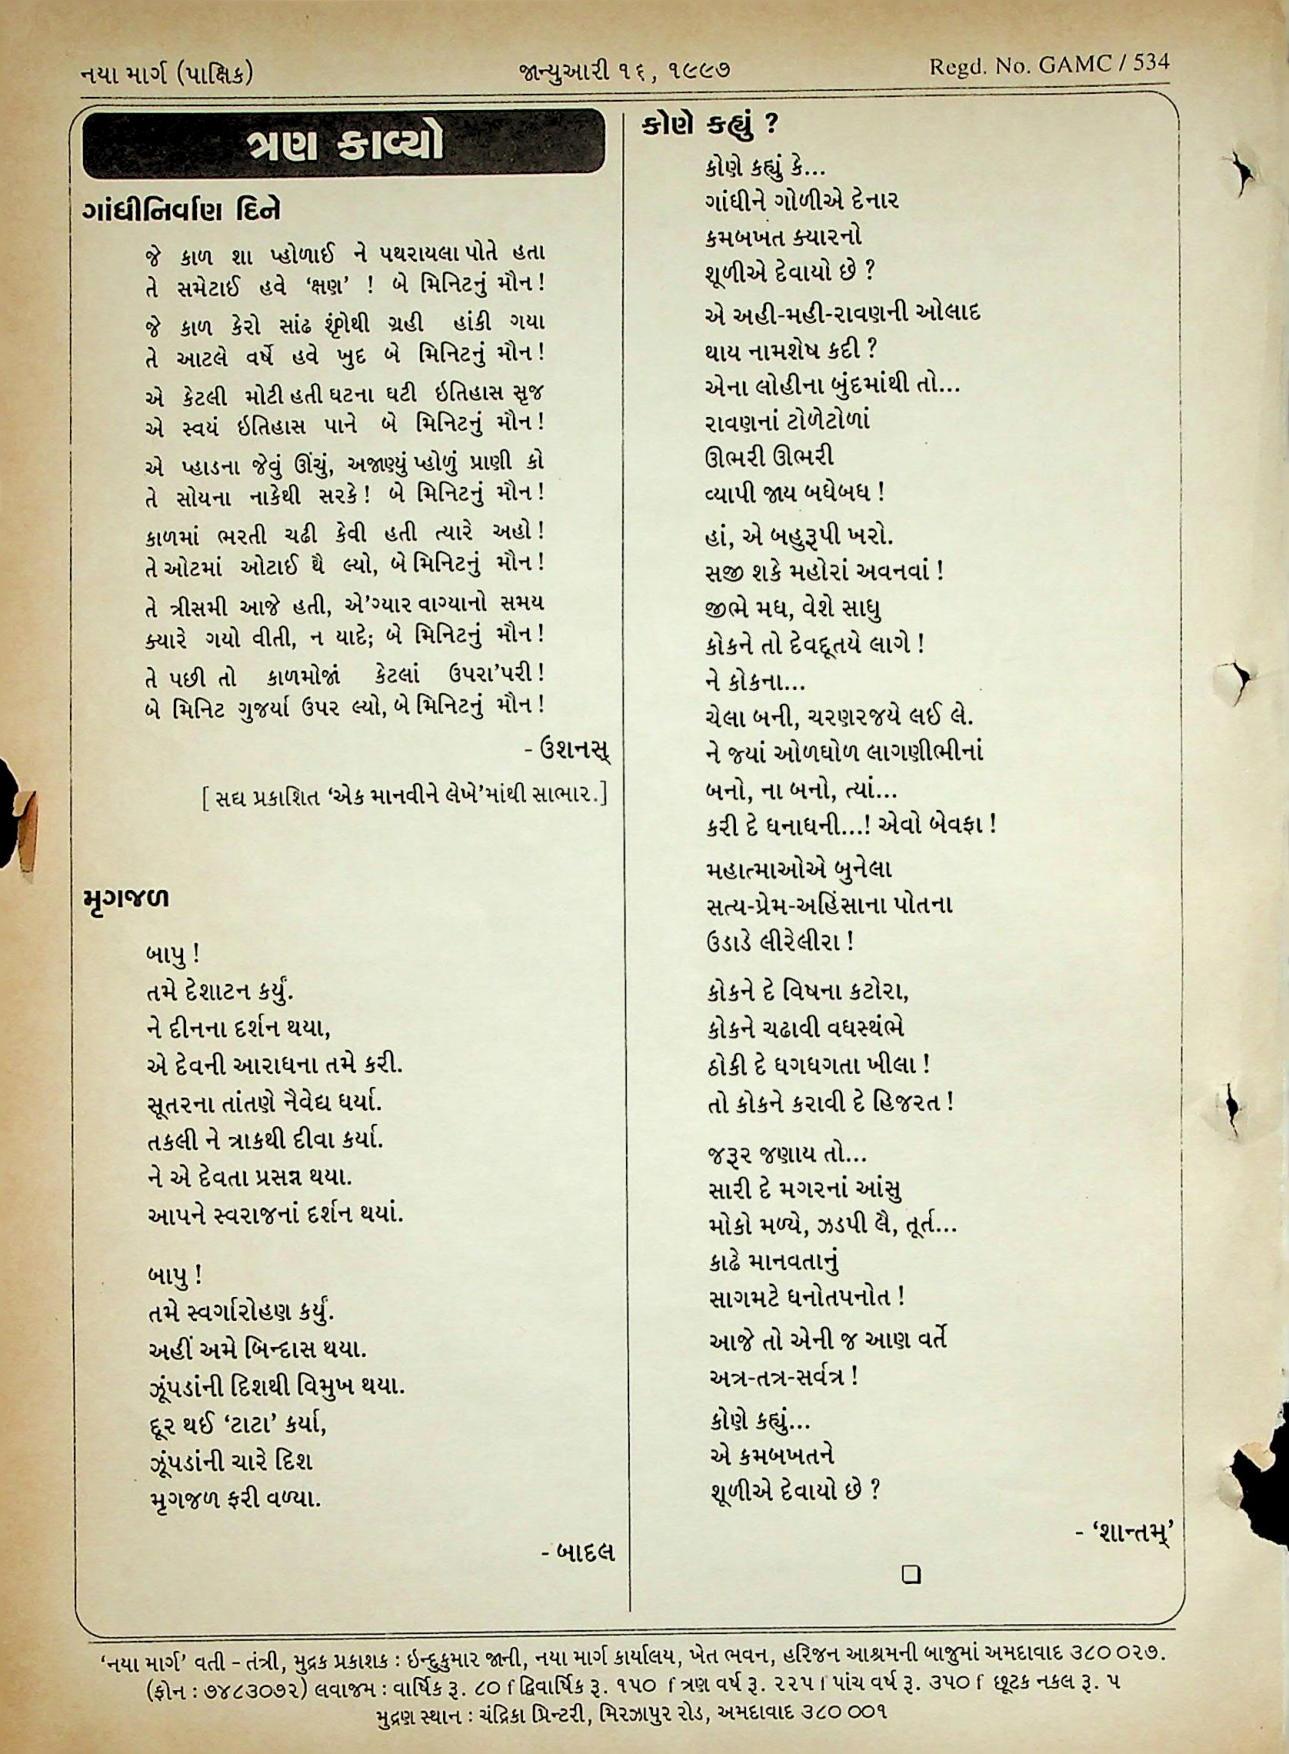 નયા માર્ગ (પાક્ષિક)
જાન્યુઆરી ૧૬, ૧૯૯૭
Regd. No. GAMC / 534
ત્રણ કાવ્યો
ગાંધીનિર્વાણ દિને
જે કાળ શા પ્હોળાઈ ને પથરાયલા પોતે હતા
તે સમેટાઈ હવે ‘ક્ષણ’ ! બે મિનિટનું મૌન !
જે કાળ કેરો સાંઢ શૃંગેથી ગ્રહી હાંકી ગયા
તે આટલે વર્ષે હવે ખુદ બે મિનિટનું મૌન !
એ કેટલી મોટી હતી ઘટના ઘટી ઇતિહાસ સૃજ
એ સ્વયં ઇતિહાસ પાને બે મિનિટનું મૌન !
એ પ્હાડના જેવું ઊંચું, અજાણ્યું પ્હોળું પ્રાણી કો
તે સોયના નાકેથી સરકે ! બે મિનિટનું મૌન !
કાળમાં ભરતી ચઢી કેવી હતી ત્યારે અહો !
તે ઓટમાં ઓટાઈ થૈ લ્યો, બે મિનિટનું મૌન !
તે ત્રીસમી આજે હતી, એ’ગ્યાર વાગ્યાનો સમય
ક્યારે ગયો વીતી, ન યાદે; બે મિનિટનું મૌન !
તે પછી તો કાળમોજાં કેટલાં ઉપરા’પરી !
બે મિનિટ ગુજર્યા ઉપર લ્યો, બે મિનિટનું મૌન !
- ઉશનસ્
[ સદ્ય પ્રકાશિત ‘એક માનવીને લેખે’માંથી સાભાર.]
મૃગજળ
બાપુ !
તમે દેશાટન કર્યું.
ને દીનના દર્શન થયા,
એ દેવની આરાધના તમે કરી.
સૂતરના તાંતણે નૈવેદ્ય ધર્યા.
તકલી ને ત્રાકથી દીવા કર્યા.
ને એ દેવતા પ્રસન્ન થયા.
આપને સ્વરાજનાં દર્શન થયાં.
બાપુ !
તમે સ્વર્ગારોહણ કર્યું.
અહીં અમે બિન્દાસ થયા.
ઝૂંપડાંની દિશથી વિમુખ થયા.
દૂર થઈ ‘ટાટા’ કર્યા,
ઝૂંપડાંની ચારે દિશ
મૃગજળ ફરી વળ્યા.
- બાદલ
કોણે કહ્યું ?
કોણે કહ્યું કે...
ગાંધીને ગોળીએ દેનાર
કમબખત ક્યારનો
શૂળીએ દેવાયો છે ?
એ અહી-મહી-રાવણની ઓલાદ
થાય નામશેષ કદી ?
એના લોહીના બુંદમાંથી તો...
રાવણનાં ટોળેટોળાં
ઊભરી ઊભરી
વ્યાપી જાય બધેબધ !
હાં, એ બહુરૂપી ખરો.
સજી શકે મહોરાં અવનવાં !
જીભે મધ, વેશે સાધુ
કોકને તો દેવદૂતયે લાગે !
ને કોકના...
ચેલા બની, ચરણરજયે લઈ લે.
ને જયાં ઓળઘોળ લાગણીભીનાં
બનો, ના બનો, ત્યાં...
કરી દે ધનાધની...! એવો બેવફા !
મહાત્માઓએ બુનેલા
સત્ય-પ્રેમ-અહિંસાના પોતના
ઉડાડે લીરેલીરા !
કોકને દે વિષના કટોરા,
કોકને ચઢાવી વધસ્થંભે
ઠોકી દે ધગધગતા ખીલા !
તો કોકને કરાવી દે હિજરત !
જરૂર જણાય તો...
સારી દે મગરનાં આંસુ
મોકો મળ્યે, ઝડપી લૈ, તૂર્ત...
કાઢે માનવતાનું
સાગમટે ધનોતપનોત !
આજે તો એની જ આણ વર્તે
અત્ર-તત્ર-સર્વત્ર !
કોણે કહ્યું...
એ કમબખતને
શૂળીએ દેવાયો છે ?
- ‘શાન્તમ્’
‘નયા માર્ગ’ વતી – તંત્રી, મુદ્રક પ્રકાશક : ઇન્દુકુમાર જાની, નયા માર્ગ કાર્યાલય, ખેત ભવન, હરિજન આશ્રમની બાજુમાં અમદાવાદ ૩૮૦ ૦૨૭.
(ફોન : ૭૪૮૩૦૭૨) લવાજમ : વાર્ષિક રૂ. ૮૦ / દ્વિવાર્ષિક રૂ. ૧૫૦ / ત્રણ વર્ષ રૂ. ૨૨૫ / પાંચ વર્ષ રૂ. ૩૫૦ / છૂટક નકલ રૂ. ૫
મુદ્રણ સ્થાન : ચંદ્રિકા પ્રિન્ટરી, મિરઝાપુર રોડ, અમદાવાદ ૩૮૦ ૦૦૧